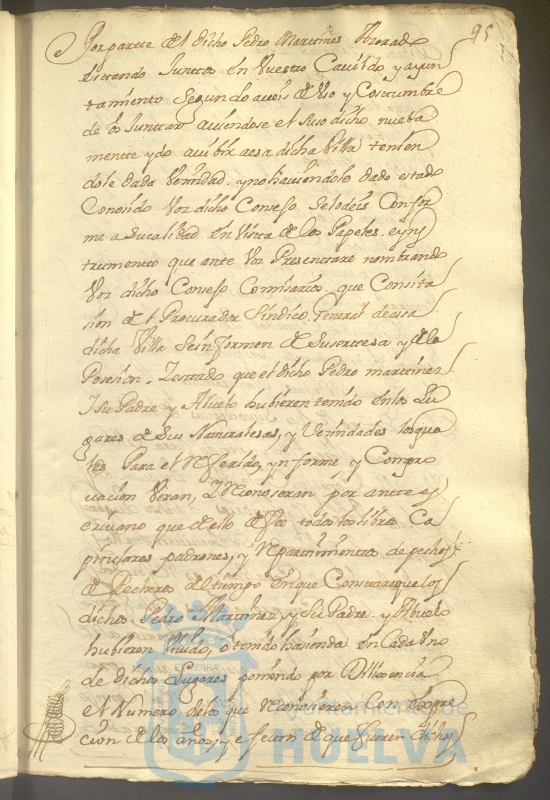 95
Por partte de el dicho Pedro Martines Honrado
estando Junttos en Vuestro Cavildo y ayun
tamiento Segun lo aveis de Vso y Costumbre
de os Junttar aviendose el suso dicho nueba
mentte ydo a vibir a esa dicha Villa tenien
dole dada Vezindad y no haviendole dado estado
Conosido Vos dicho Consejo se lo deis Confor
me a su calidad en Vista de los Papeles e yns
trumentto que ante Vos Presenttare nombrando
Vos dicho Consejo Comisarios que Con sita
sion de el Procurador Sindico General de esa
dicha Villa se informen de su sertesa y de la
Posesion, que el dicho Pedro martines
Y su Padre y Abuelo hubieren tenido en los Lu
gares de sus Naturalesas, y Vezindades los qua
les Para el Referido, ynforme y Compro
vacion Veran, Y Reconoseran por antte es
crivano que de ello de fee todos los libros Ca
pitulares padrones, y Repartimientos de pechos
de Pecheros del tiempo en que Constare que los
dichos Pedro Martines, y su Padre y Abuelo
hubieren Vivido, o tenido hasienda en Cada Vno
de dichos Lugares poniendo por Dilixencia
el Numero de los que Reconosieren Con expre
cion de los años, y efectos de que fueren dichos
Ayuntamiento de
HUELVA